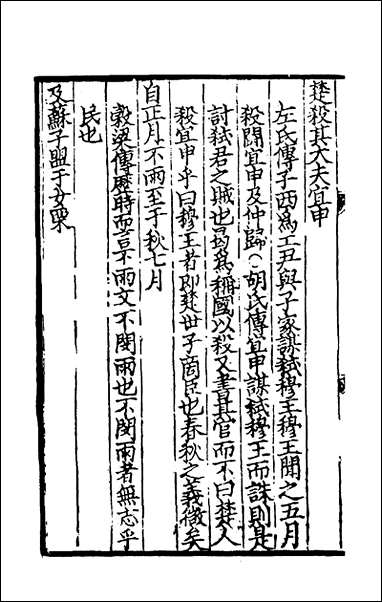 楚殺其大夫宜申
左氏傳子西爲工尹與子家謀弑穆王穆王聞之五月
殺鬬宜申及仲歸○胡氏傳宜申謀弑穆王而誅則是
討弑君之賊也曷爲稱國以殺又書其官而不曰楚人
殺宜申乎曰穆王者即楚世子商臣也春秋之義微矣
自正月不雨至于秋七月
穀梁傳歷時而言不雨文不閔雨也不閔雨者無志乎
民也
及蘇子盟于女栗